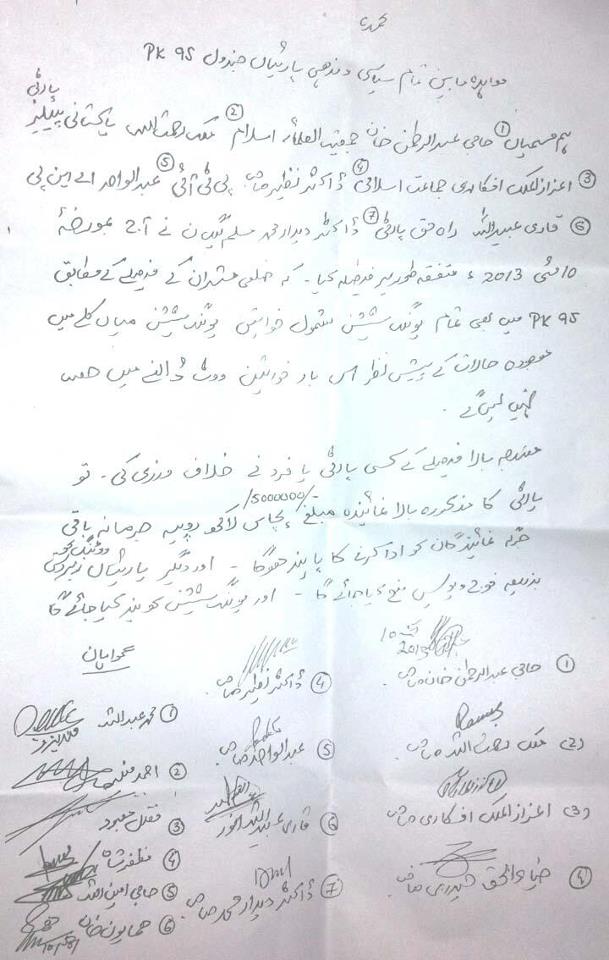 معاہدہ مابین تمام سیاسی و مذہبی پارٹیاں جندول PK 95
پارٹی
ہم مسمیان ① حاجی عبدالرحمٰن خان جمعیت العلماء اسلام ② ملک نعمت اللہ پاکستانی پیپلز
③ اعزازالملک افکاری جماعت اسلامی ④ ڈاکٹر نظیر صاحب پی ٹی آئی ⑤ عبدالواحد اے این پی
⑥ قاری عبیداللہ راہ حق پارٹی ⑦ ڈاکٹر دیدار محمد مسلم لیگ ن نے آج مورخہ
10 مئی 2013ء متفقہ طور پر فیصلہ کیا۔ کہ ضلعی مشران کے فیصلے کے مطابق
PK 95 میں بھی تمام پولنگ سٹیشن بشمول خواتین پولنگ سٹیشن میاں کلے میں
موجودہ حالات کے پیش نظر اس بار خواتین ووٹ ڈالنے میں حصہ
نہیں لیں گے۔
مندرجہ بالا فیصلے کے کسی پارٹی یا فرد نے خلاف ورزی کی۔ تو
پارٹی کا مذکورہ بالا نمائندہ مبلغ /5000000/- پچاس لاکھ روپیہ جرمانہ باقی
نمائندگان کو ادا کرنے کا پابند ہوگا۔ اور دیگر پارٹیاں
بذریعہ فوج و پولیس منع کیا جائے گا۔ اور پولنگ سٹیشن کو بند کیا جائے گا
گواہان
① حاجی عبدالرحمٰن خان صاحب
10
2013
② ملک نعمت اللہ صاحب
③ اعزازالملک افکاری صاحب
④ ضیاء الحق حیدری صاحب
④ ڈاکٹر نظیر صاحب
⑤ عبدالواحد صاحب
⑥ قاری عبیداللہ انور
⑦ ڈاکٹر دیدار محمد صاحب
① محمد عبداللہ
② احمد
③ فضل معبود
④ مظفر شاہ
⑤ حاجی امین اللہ
⑥ ہمایون خان